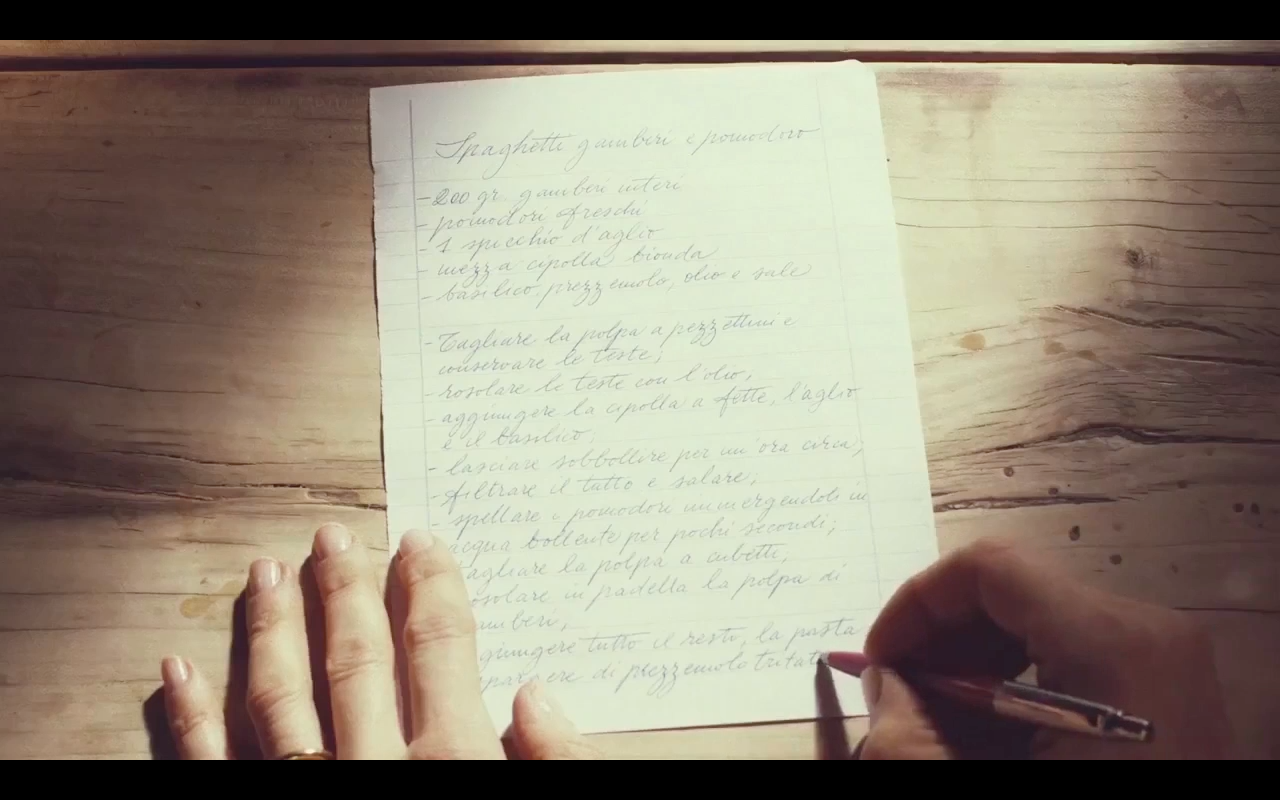 Spaghetti gamberi e pomodoro
- 200 gr. gamberi interi
- pomodori freschi
- 1 spicchio d'aglio
- mezza cipolla bionda
- basilico, prezzemolo, olio e sale
- Tagliare la polpa a pezzettini e
conservare le teste;
- rosolare le teste con l'olio,
- aggiungere la cipolla a fette, l'aglio
e il basilico;
- lasciare sobbollire per un'ora circa;
- filtrare il tutto e salare;
- spellare i pomodori immergendoli in
acqua bollente per pochi secondi;
agliare la polpa a cubetti;
osolare in padella la polpa di
amberi,
giungere tutto il resto, la pasta
pargere di prezzemolo tritat